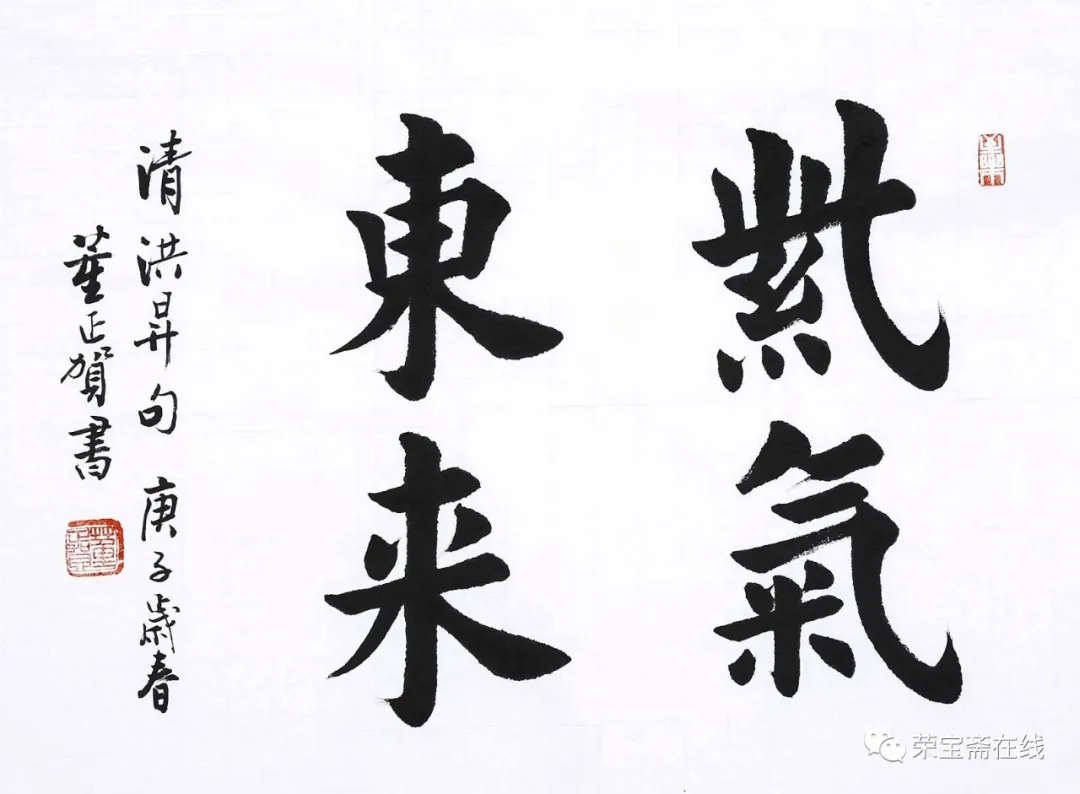 紫氣
東来
清洪昇句 庚子歲春
董正賀書
荣宝斋在线